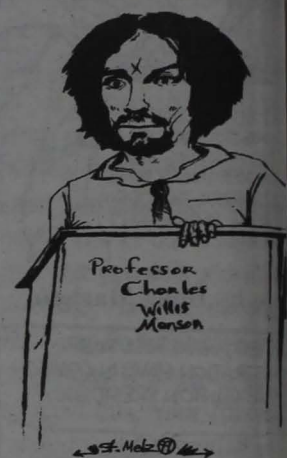 Professor
Charles
Willis
Manson
St. Melz